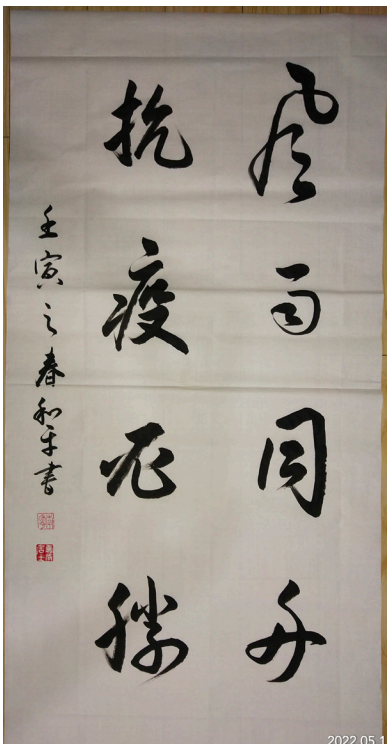 风雨同舟
抗疫必胜
壬寅之春和平书
2022.05.1